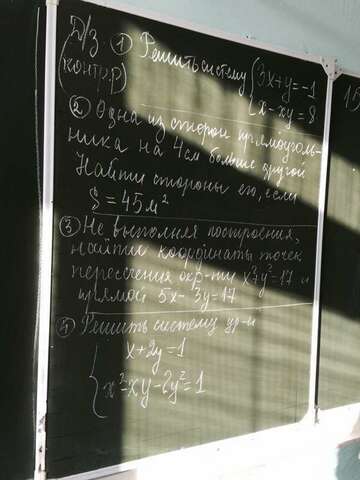 Д/З
(контр.р)
① Решить систему { 3x + y = -1
x - xy = 8
② Одна из сторон прямоуголь-
ника на 4см больше другой
Найти стороны его, если
S = 45м²
③ Не выполняя построения,
найти координаты точек
пересечения окр-ти x²+y²=17 и
прямой 5x - 3y = 17
④ Решить систему ур-й
{ x + 2y = 1
x² - xy - 2y² = 1